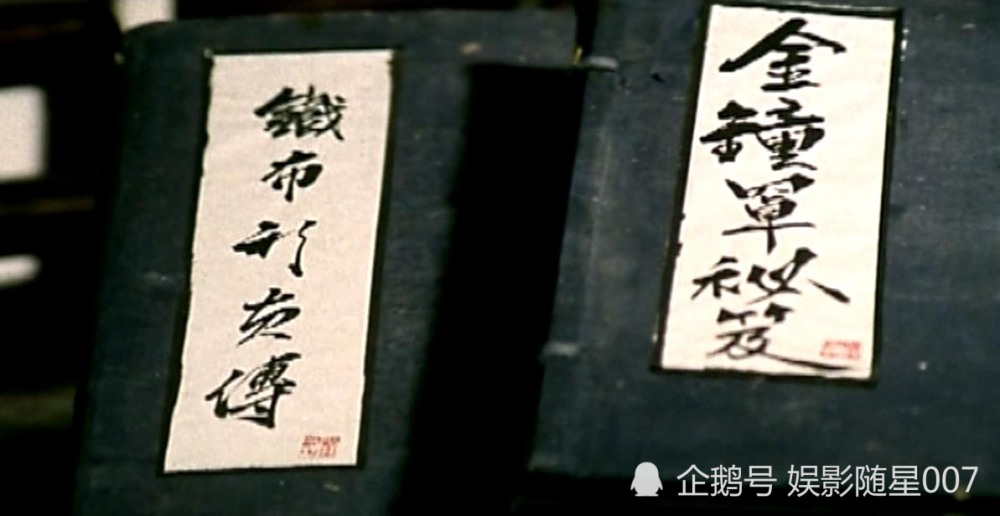 鐵布衫真傳
金鐘罩祕笈
企鹅号 娱影随星007